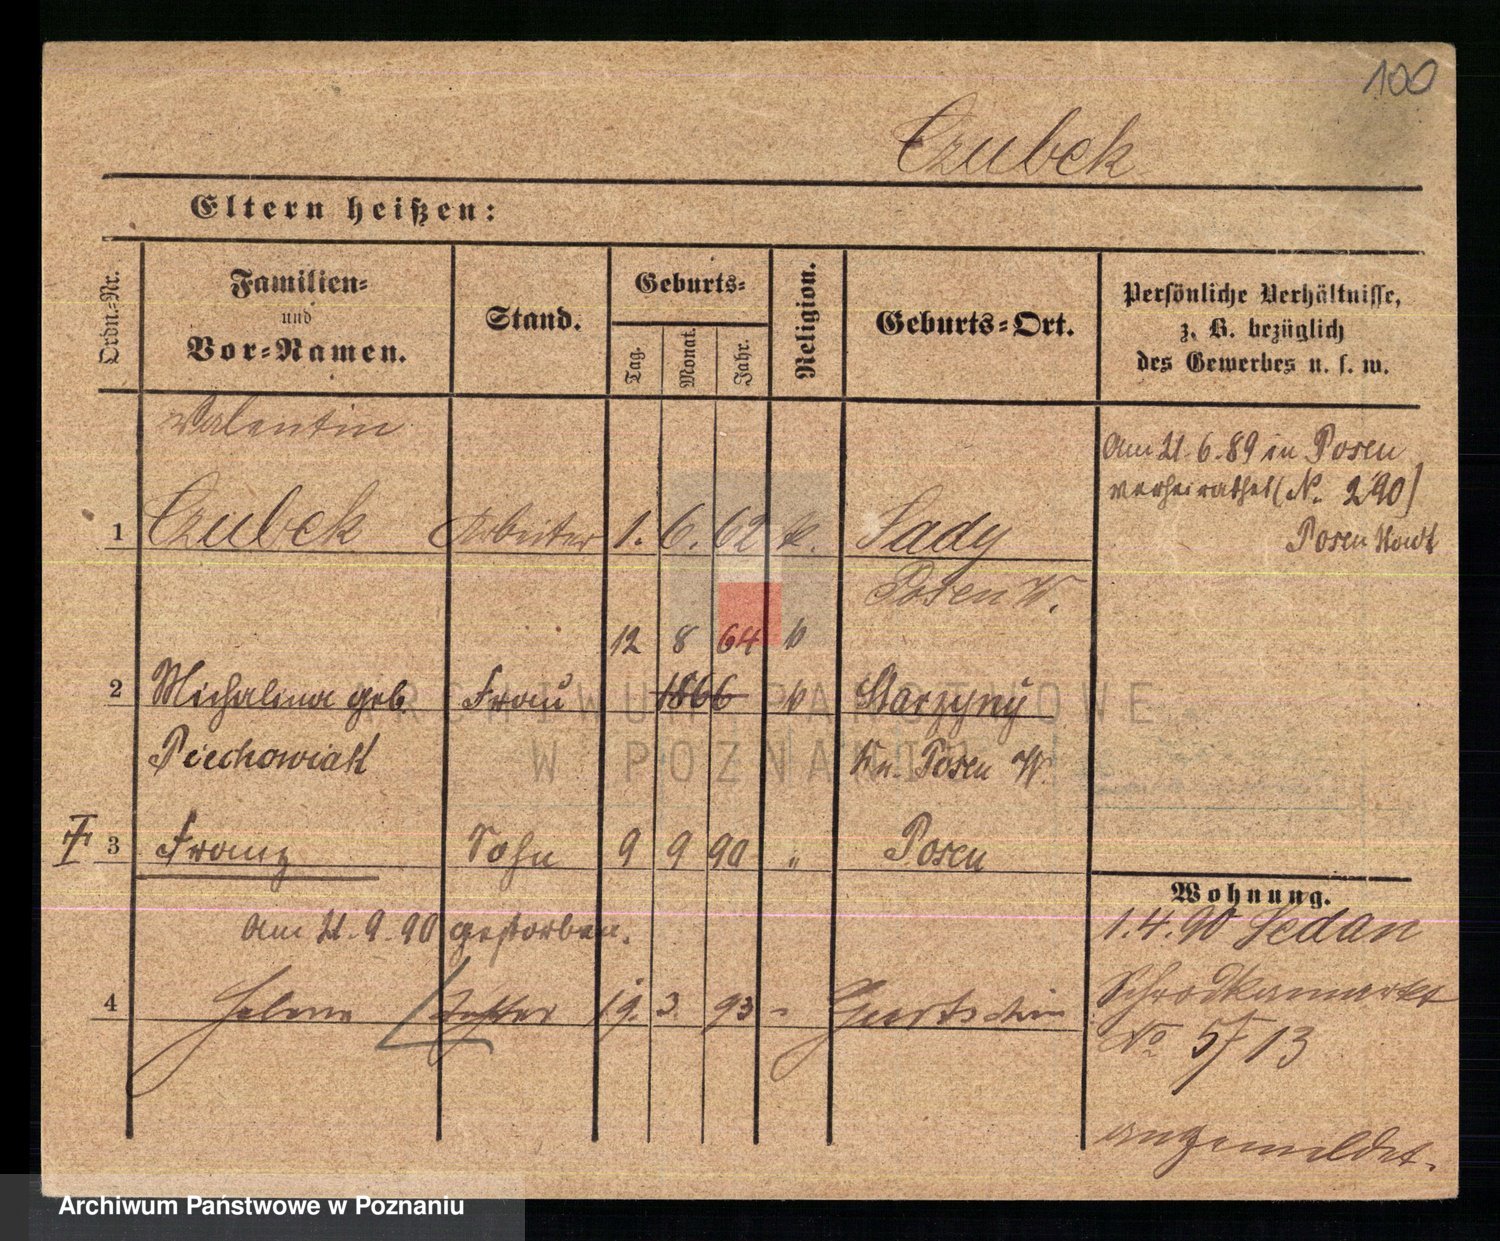 100
Czubek
Eltern heißen:
Ordn.-Nr.
Familien-
und
Vor-Namen.
Stand.
Geburts-
Tag.
Monat.
Jahr.
Religion.
Geburts-Ort.
Persönliche Verhältnisse,
z. B. bezüglich
des Gewerbes u. s. w.
Valentin
1 Czubek Arbeiter 1. 6. 62 k. Sady
Posen W.
Am 21.6.89 in Posen
verheirathet (No. 290)
Posen
12 8 64 k
2 Michalina geb. Frau 1866 k
Piechowiak Kr. Posen W.
3 Franz Sohn 9 9 90 " Posen
Am 21.9.90 gestorben.
4 Helene Tochter 19. 3. 93 -
Wohnung.
1.4.90 Sedan
Schrodkamarkt
No 13
angemeldet.
ARCHIWUM PAŃSTWOWE
W POZNANIU
Archiwum Państwowe w Poznaniu